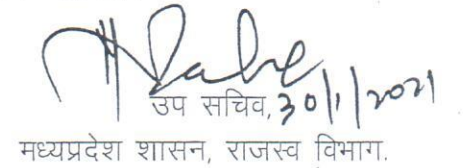 उप सचिव, 30/1/2021
मध्यप्रदेश शासन, राजस्व विभाग.